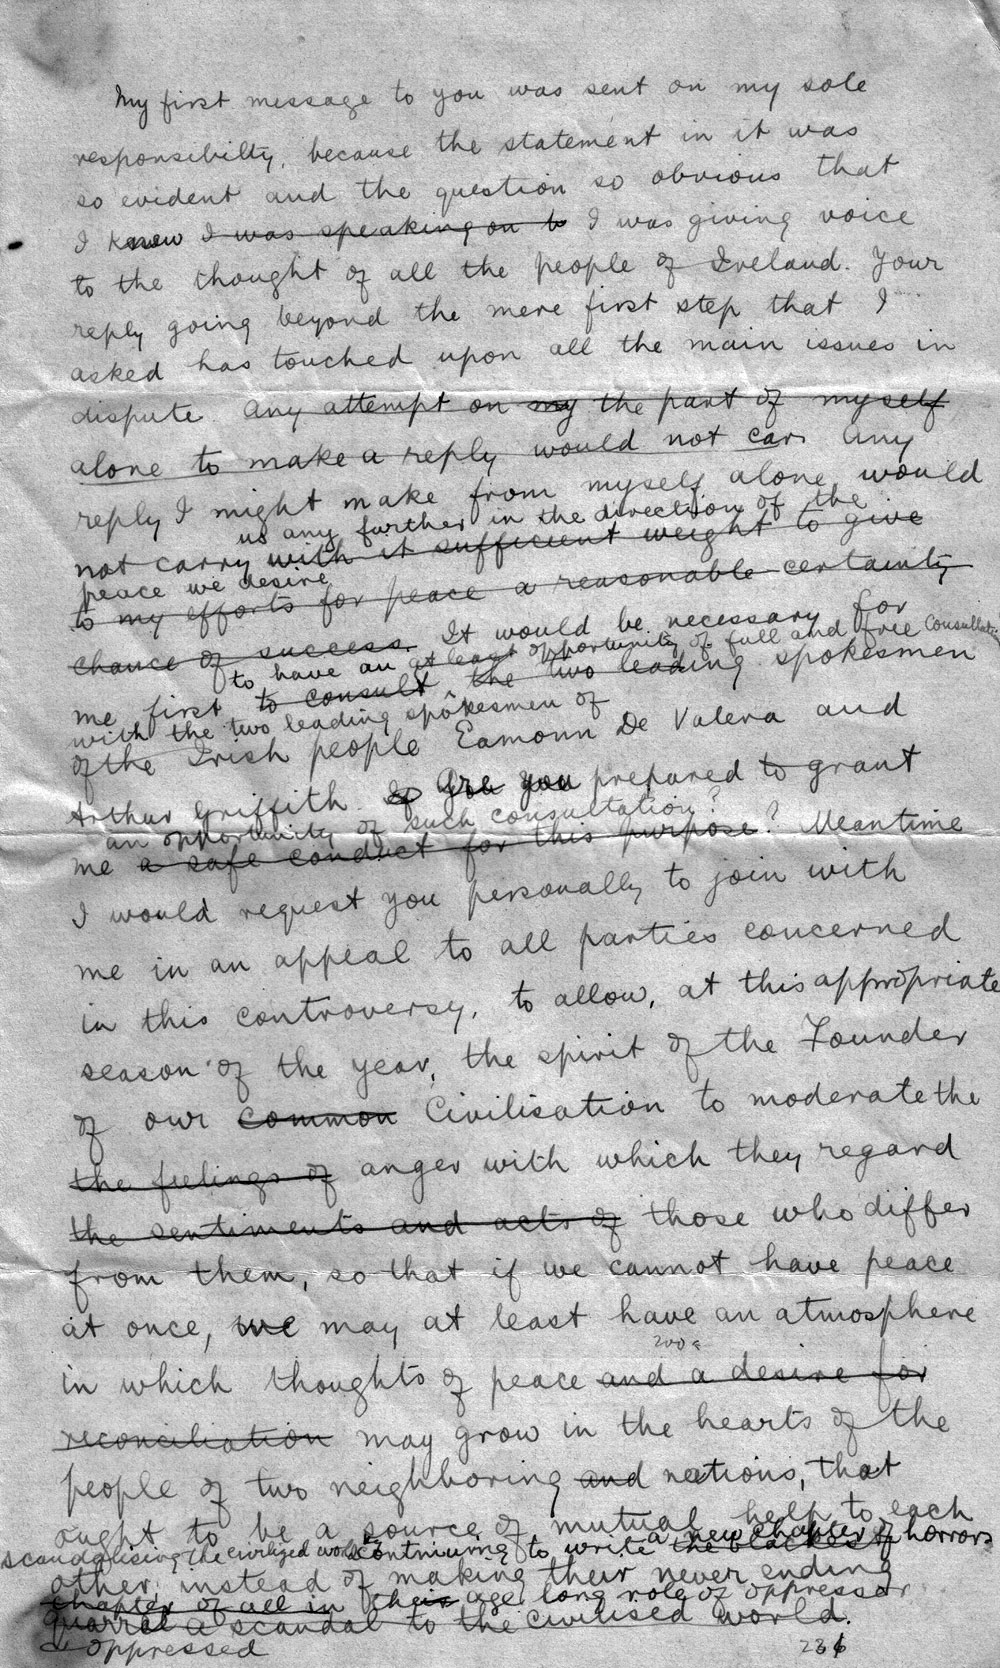 My first message to you was sent on my sole
responsibilty, because the statement in it was
so evident and the question so obvious that
I knew I was speaking on b I was giving voice
to the thought of all the people of Ireland. Your
reply going beyond the mere first step that I
asked has touched upon all the main issues in
dispute any attempt on my the part of myself
alone to make a reply would not carr any
reply I might make from myself alone would
us any further in the direction of the
not carry with it sufficient weight to give
peace we desire
to my efforts for peace a reasonable certainty
chance of success. It would be necessary for
to have an at least opportunity of full and free consultation
me first to consult the two leading spokesmen
with the two leading spokesmen of
of the Irish people Eamonn De Valera and
Arthur Griffith. If Are you prepared to grant
an opportunity of such consultation?
me a safe conduct for this purpose? Meantime
I would request you personally to join with
me in an appeal to all parties concerned
in this controversy, to allow, at this appropriate
season of the year, the spirit of the Founder
of our common Civilisation to moderate the
the feelings of anger with which they regard
the sentiments and acts of those who differ
from them, so that if we cannot have peace
at once, we may at least have an atmosphere
in which thoughts of peace and a desire for
reconciliation may grow in the hearts of the
people of two neighboring and nations, that
ought to be a source of mutual help to each
scandalising the civilized world continuing to write a new chapter of the blackest horrors
other, instead of making their never ending
chapter of all in their age long role of oppressor
quarrel a scandal to the civilised world.
& oppressed
236